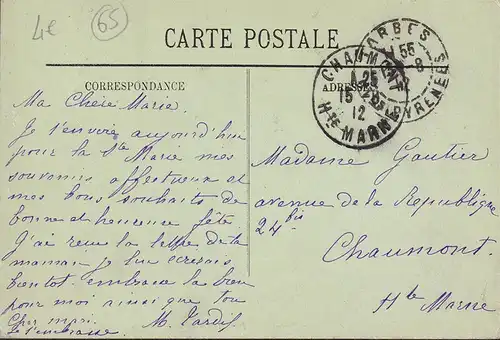 4e
65
CARTE POSTALE
CORRESPONDANCE
ADRESSE
CHAUMONT
15
12
Hte MARNE
TARBES
55
8
PYRENEES
Ma Chère Marie
Je t'envoie aujourd'hui
pour la Ste Marie mes
souvenirs affectueux et
mes bons souhaits de
bonne et heureuse fête
J'ai reçu la lettre de ta
maman je lui écrirais
bientot. embrasse la bien
pour moi ainsi que ton
Cher mari.
Je t'embrasse
M. Tardif
Madame Gautier
avenue de la République
24 bis
Chaumont.
Hte Marne